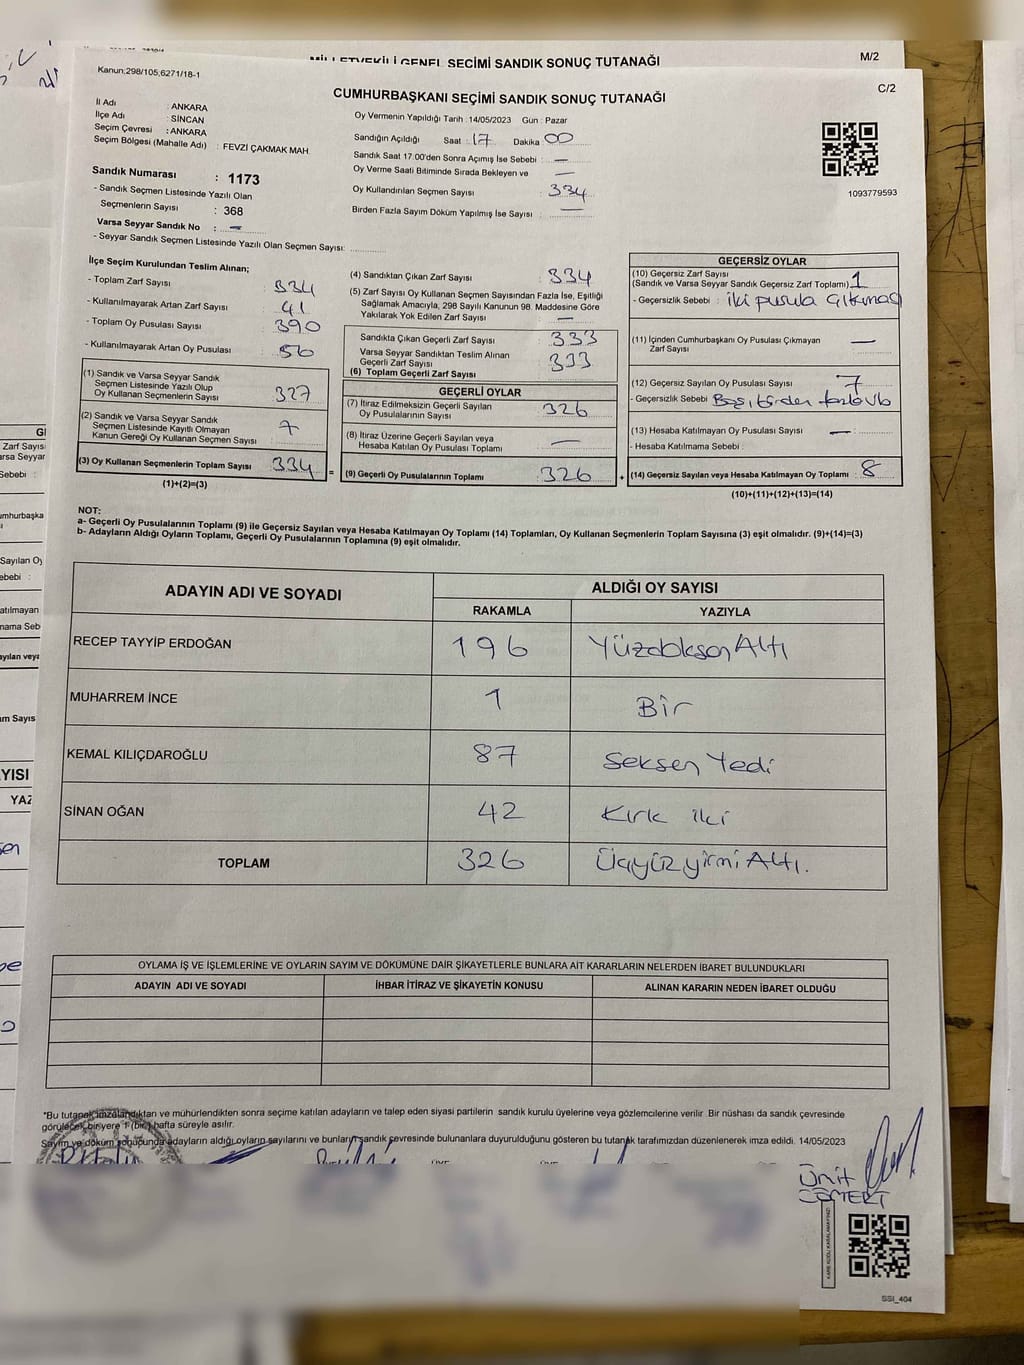 MİLLETVEKİLİ GENEL SEÇİMİ SANDIK SONUÇ TUTANAĞI
M/2
Kanun:298/105,6271/18-1
CUMHURBAŞKANI SEÇİMİ SANDIK SONUÇ TUTANAĞI
C/2
İl Adı : ANKARA
İlçe Adı : SİNCAN
Seçim Çevresi : ANKARA
Seçim Bölgesi (Mahalle Adı) : FEVZİ ÇAKMAK MAH.
Sandık Numarası : 1173
- Sandık Seçmen Listesinde Yazılı Olan
Seçmenlerin Sayısı : 368
Varsa Seyyar Sandık No : -
- Seyyar Sandık Seçmen Listesinde Yazılı Olan Seçmen Sayısı:
Oy Vermenin Yapıldığı Tarih : 14/05/2023 Gün : Pazar
Sandığın Açıldığı Saat : 17 Dakika : 00
Sandık Saat 17:00'den Sonra Açımış İse Sebebi : —
Oy Verme Saati Bitiminde Sırada Bekleyen ve —
Oy Kullandırılan Seçmen Sayısı : 334
Birden Fazla Sayım Döküm Yapılmış İse Sayısı : —
1093779593
İlçe Seçim Kurulundan Teslim Alınan;
- Toplam Zarf Sayısı : 334
- Kullanılmayarak Artan Zarf Sayısı : 41
- Toplam Oy Pusulası Sayısı : 390
- Kullanılmayarak Artan Oy Pusulası : 56
(1) Sandık ve Varsa Seyyar Sandık
Seçmen Listesinde Yazılı Olup
Oy Kullanan Seçmenlerin Sayısı : 327
(2) Sandık ve Varsa Seyyar Sandık
Seçmen Listesinde Kayıtlı Olmayan
Kanun Gereği Oy Kullanan Seçmen Sayısı : 7
(3) Oy Kullanan Seçmenlerin Toplam Sayısı : 334
(1)+(2)=(3)
(4) Sandıktan Çıkan Zarf Sayısı : 334
(5) Zarf Sayısı Oy Kullanan Seçmen Sayısından Fazla İse, Eşitliği
Sağlamak Amacıyla, 298 Sayılı Kanunun 98. Maddesine Göre
Yakılarak Yok Edilen Zarf Sayısı : —
Sandıkta Çıkan Geçerli Zarf Sayısı : 333
Varsa Seyyar Sandıktan Teslim Alınan
Geçerli Zarf Sayısı : 333
(6) Toplam Geçerli Zarf Sayısı
=
GEÇERLİ OYLAR
(7) İtiraz Edilmeksizin Geçerli Sayılan
Oy Pusulalarının Sayısı : 326
(8) İtiraz Üzerine Geçerli Sayılan veya
Hesaba Katılan Oy Pusulası Toplamı : —
(9) Geçerli Oy Pusulalarının Toplamı : 326
+
GEÇERSİZ OYLAR
(10) Geçersiz Zarf Sayısı
(Sandık ve Varsa Seyyar Sandık Geçersiz Zarf Toplamı) : 1
- Geçersizlik Sebebi : iki pusula çıkması
(11) İçinden Cumhurbaşkanı Oy Pusulası Çıkmayan
Zarf Sayısı : —
(12) Geçersiz Sayılan Oy Pusulası Sayısı : 7
- Geçersizlik Sebebi :
(13) Hesaba Katılmayan Oy Pusulası Sayısı : —
- Hesaba Katılmama Sebebi :
(14) Geçersiz Sayılan veya Hesaba Katılmayan Oy Toplamı : 8
(10)+(11)+(12)+(13)=(14)
NOT:
a- Geçerli Oy Pusulalarının Toplamı (9) ile Geçersiz Sayılan veya Hesaba Katılmayan Oy Toplamı (14) Toplamları, Oy Kullanan Seçmenlerin Toplam Sayısına (3) eşit olmalıdır. (9)+(14)=(3)
b- Adayların Aldığı Oyların Toplamı, Geçerli Oy Pusulalarının Toplamına (9) eşit olmalıdır.
ADAYIN ADI VE SOYADI
ALDIĞI OY SAYISI
RAKAMLA
YAZIYLA
RECEP TAYYİP ERDOĞAN 196 YüzdoksanAltı
MUHARREM İNCE 1 Bir
KEMAL KILIÇDAROĞLU 87 Seksen Yedi
SİNAN OĞAN 42 Kırk iki
TOPLAM 326 ÜçyüzyirmiAltı.
OYLAMA İŞ VE İŞLEMLERİNE VE OYLARIN SAYIM VE DÖKÜMÜNE DAİR ŞİKAYETLERLE BUNLARA AİT KARARLARIN NELERDEN İBARET BULUNDUKLARI
ADAYIN ADI VE SOYADI
İHBAR İTİRAZ VE ŞİKAYETİN KONUSU
ALINAN KARARIN NEDEN İBARET OLDUĞU
*Bu tutanak imzalandıktan ve mühürlendikten sonra seçime katılan adayların ve talep eden siyasi partilerin sandık kurulu üyelerine veya gözlemcilerine verilir. Bir nüshası da sandık çevresinde
görülecek bir yere 1 (bir) hafta süreyle asılır.
Sayım ve döküm sonucunda adayların aldığı oyların sayılarını ve bunların sandık çevresinde bulunanlara duyurulduğunu gösteren bu tutanak tarafımızdan düzenlenerek imza edildi. 14/05/2023
Ümit
CÖMERT
SSI_404